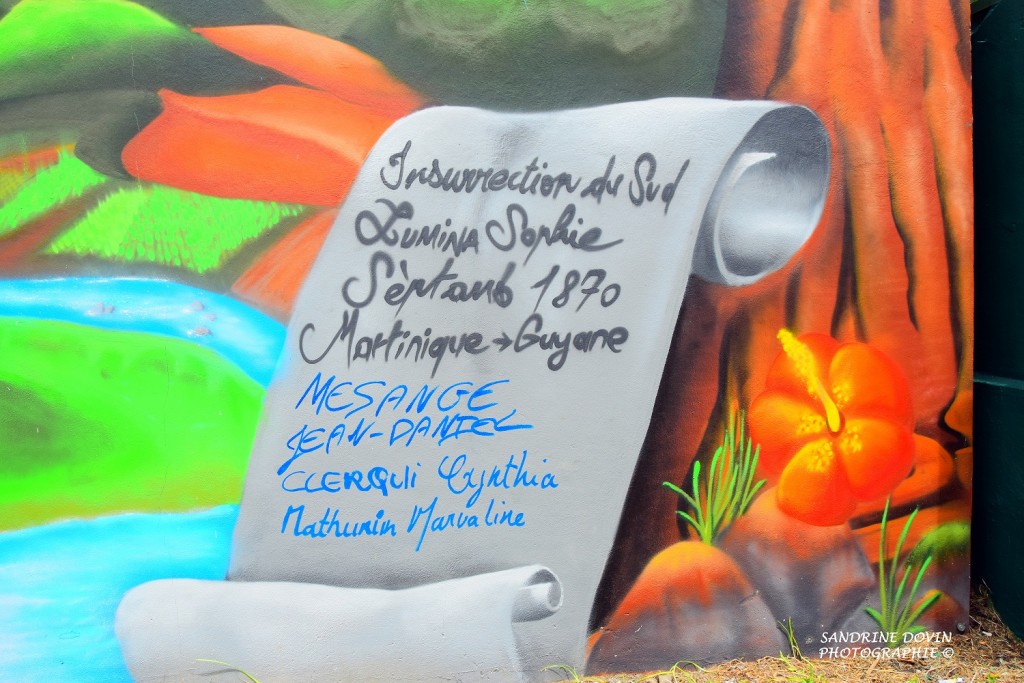 Insurrection du Sud
Lumina Sophie
Sèptanb 1870
Martinique → Guyane
MESANGE
JEAN-DANIEL
CLERQUI Cynthia
Mathurin Marvaline
SANDRINE DOVIN
PHOTOGRAPHIE ©